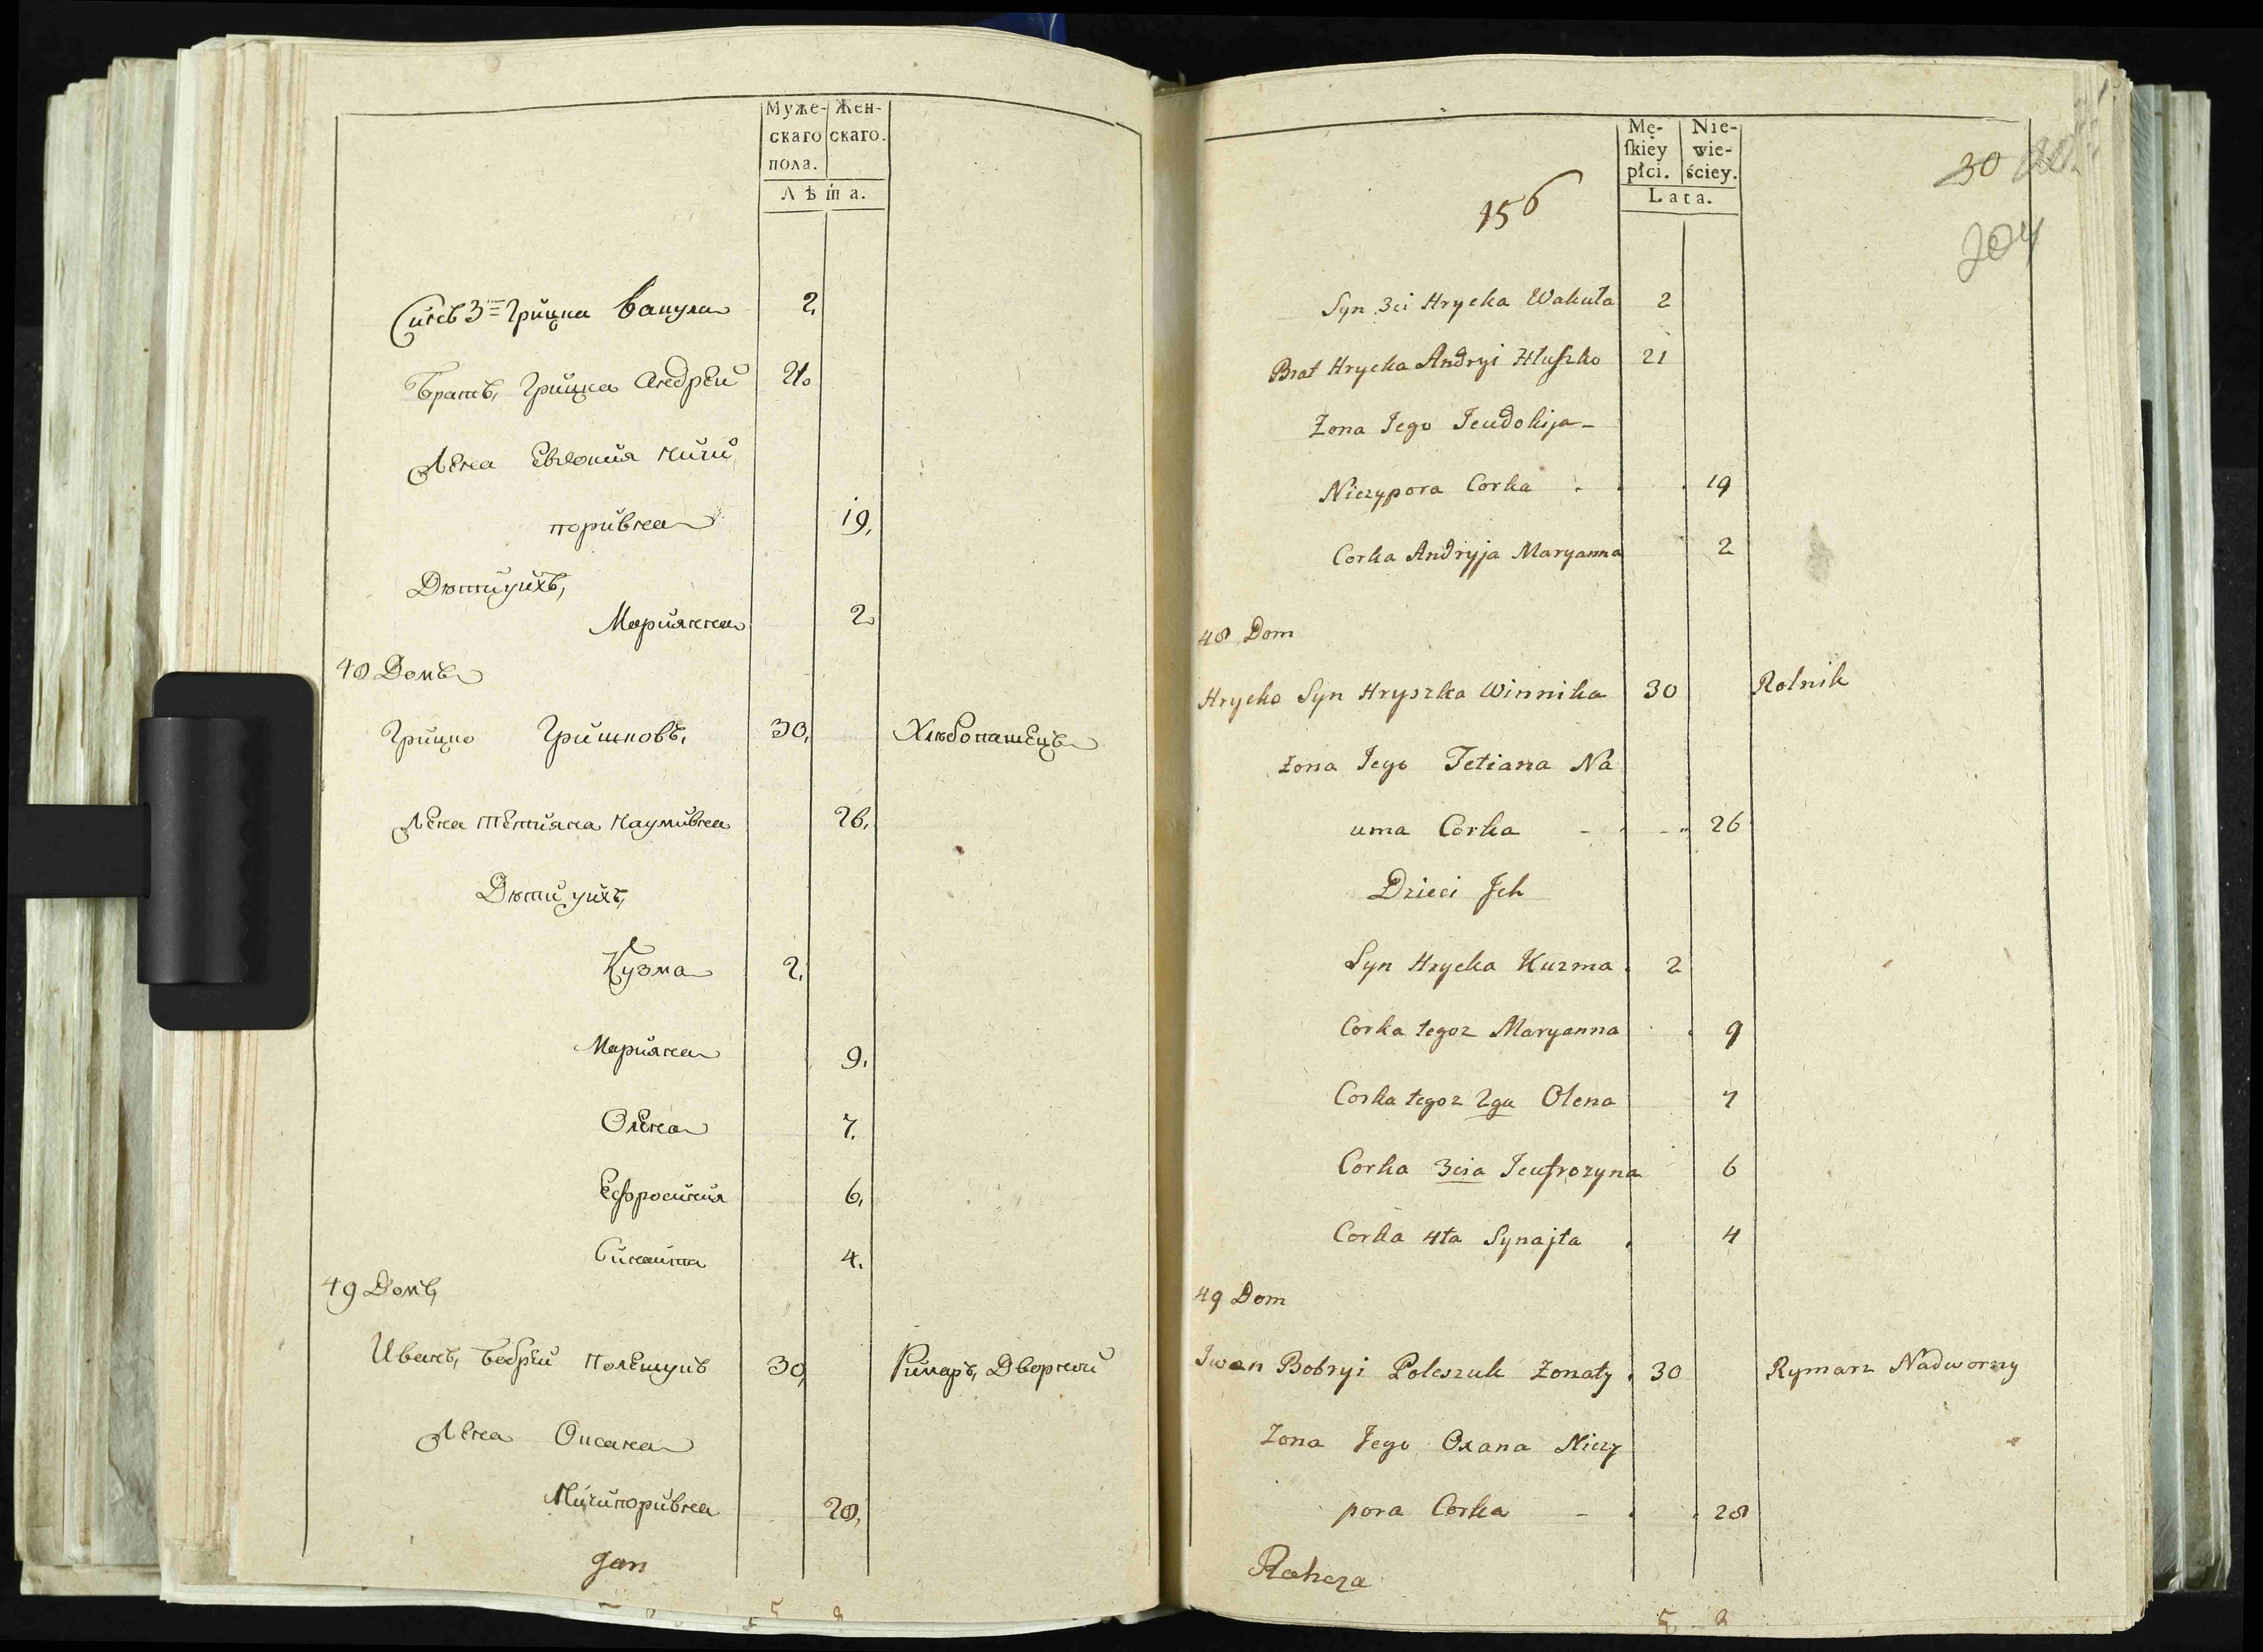 Муже-
скаго
пола.
Жен-
скаго.
Лѣта.
Синъ 3й Грицка Вакула 2,
Братъ, Грицка Андрей 21.
Жена Евдокия Ничи
поривна 19,
Дѣти уихъ,
Марианна 2
48 Домъ
Грицко Гришковъ, 30, Хлѣбопашецъ
Жена Тетияна Наумивна 26,
Дѣти уихъ,
Кузма 2,
Марияна 9,
Олена 7.
Ефросиния 6,
Синаита 4.
49 Домъ,
Иванъ, Бобрий Полещукъ 30, Римаръ, Дворний
Жена Оксана
Ничипоривна 28,
Jan
5 8
Mę-
ſkiey
płci.
Nie-
wie-
ściey.
Lata.
156
30
204
Syn 3ci Hrycka Wakuła 2
Brat Hrycka Andryi Hłuſzko 21
Żona Jego Jeudokija
Niczypora Corka 19
Corka Andryja Maryanna 2
48 Dom
Hrycko Syn Hryszka Winnika 30 Rolnik
żona Jego Tetiana Na
uma Corka 26
Dzieci Jch
Syn Hrycka Kuzma 2
Corka tegoz Maryanna 9
Corka tegoz 2ga Olena 7
Corka 3cia Jeufrozyna 6
Corka 4ta Synajta 4
49 Dom
Jwan Bobryi Poleszuk Żonaty 30 Rymarz Nadworny
Żona Jego Oxana Niczy
pora Corka 28
5 8